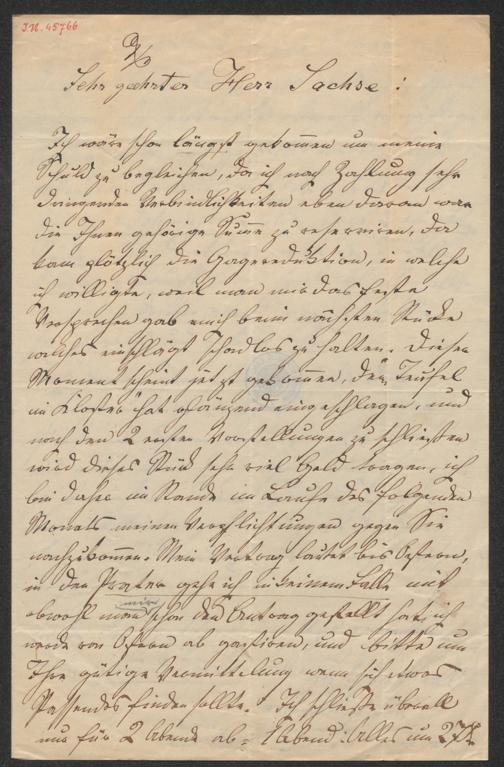 I.N. 45766
Sehr geehrter Herr Sachse!
Ich wäre schon längst gekommen um meine
Schuld zu begleichen, da ich nach Zahlung sehr
dringender Verbindlichkeiten eben daran war
die Ihnen gehörige Summe zu reserviren, da
kam plötzlich die Gagereduktion, in welche
ich willigte, weil man mir das feste
Versprechen gab mich beim nächsten Stücke
welches einschlägt schadlos zu halten. Dieser
Moment scheint jetzt gekommen, der „Teufel
im Kloster" hat glänzend eingeschlagen, und
nach den 2 ersten Vorstellungen zu schließen
wird dieses Stück sehr viel Geld tragen, ich
bin daher im Stande im Laufe des folgenden
Monats meinen Verpflichtungen gegen Sie
nachzukommen. Mein Vertrag lautet bis Ostern,
in den Prater gehe ich in keinem Falle mit
obwohl man mir schon den Antrag gestellt hat, ich
werde von Ostern ab gastiren, und bitte um
Ihre gütige Vermittelung wenn sich etwas
Passendes finden sollte. Ich schließe überall
nur für 2 Abende ab. 1 Abend: Alles um